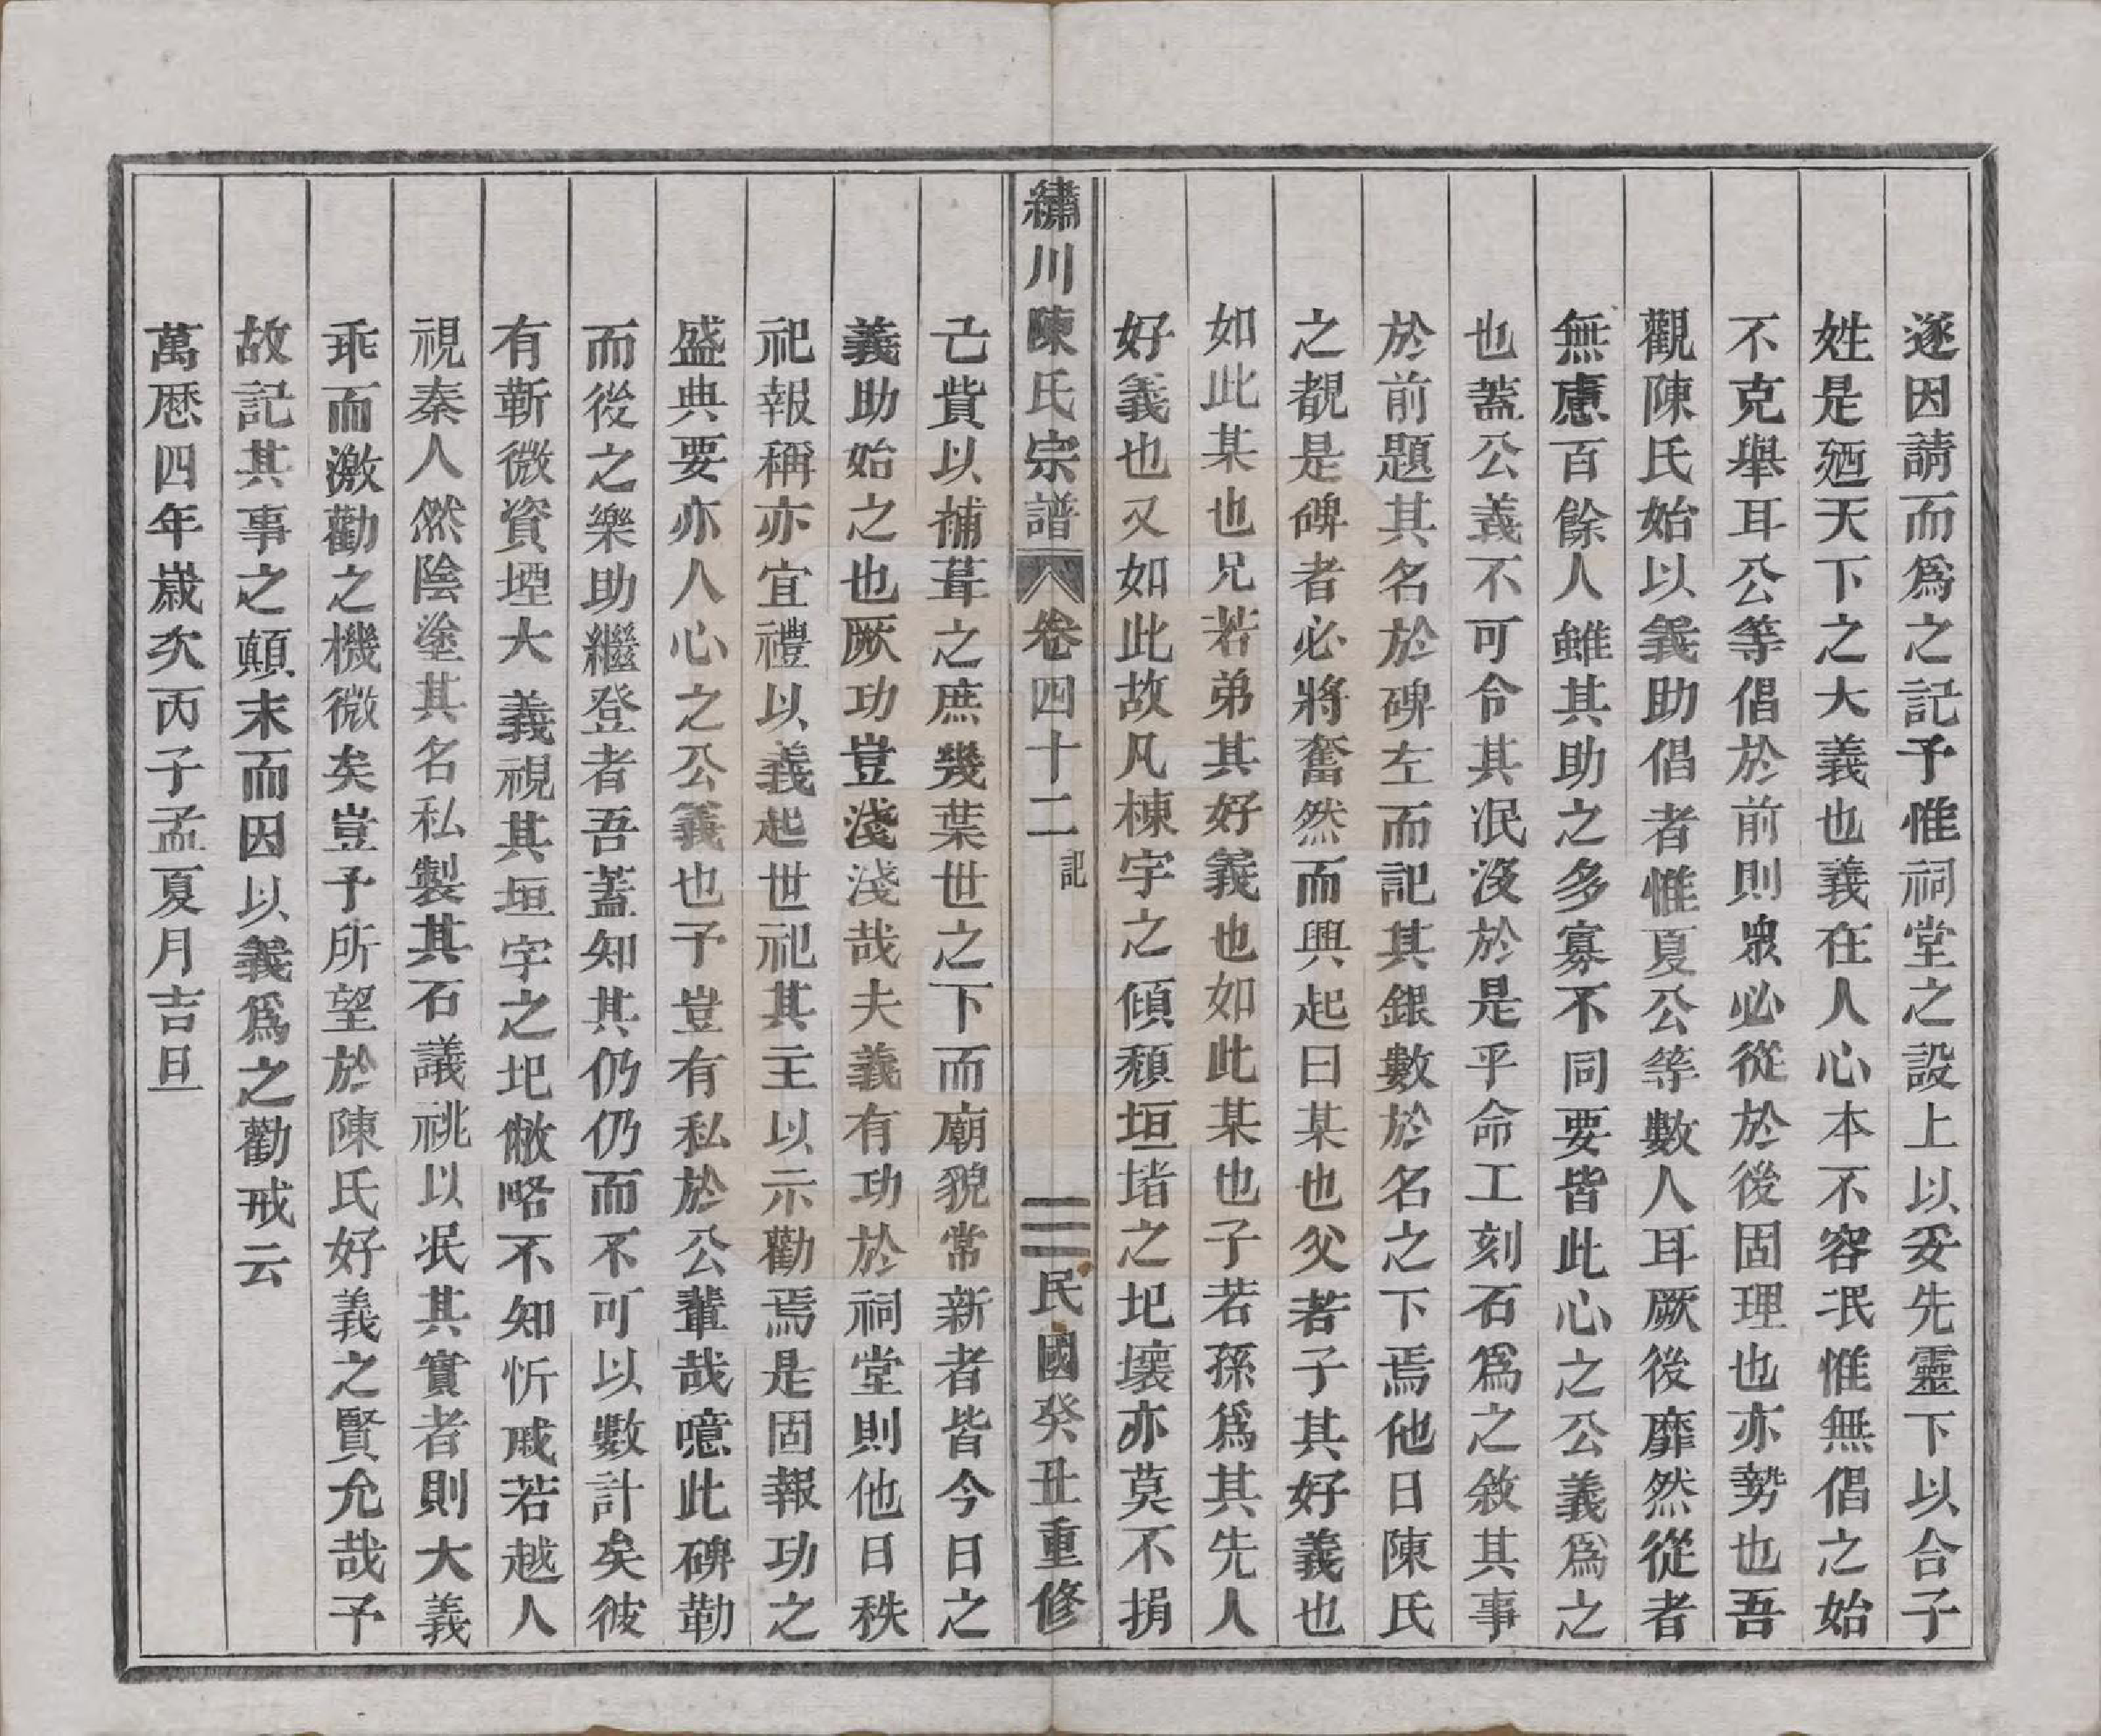 遂因請而爲之記予惟祠堂之設上以妥先靈下以合子
姓是廼天下之大義也義在人心本不容泯惟無倡之始
不克舉耳公等倡於前則衆必從於後固理也亦勢也吾
觀陳氏始以義助倡者惟夏公等數人耳厥後靡然從者
無慮百餘人雖其助之多寡不同要皆此心之公義爲之
也蓋公義不可令其泯沒於是乎命工刻石爲之敘其事
於前題其名於碑左而記其銀數於名之下焉他日陳氏
之覩是碑者必將奮然而興起曰某也父若子其好義也
如此某也兄若弟其好義也如此某也子若孫爲其先人
好義也又如此故凡棟宇之傾頹垣堵之圯壞亦莫不捐
繡川陳氏宗譜 卷四十二 記 三 民國癸丑重修
己貲以補葺之庶幾葉世之下而廟貌常新者皆今日之
義助始之也厥功豈淺淺哉夫義有功於祠堂則他日秩
祀報稱亦宜禮以義起世祀其主以示勸焉是固報功之
盛典要亦人心之公義也予豈有私於公輩哉噫此碑勒
而後之樂助繼登者吾蓋知其仍仍而不可以數計矣彼
有靳微資堙大義視其垣宇之圯敝略不知忻戚若越人
視秦人然陰塗其名私製其石議祧以泯其實者則大義
乖而激勸之機微矣豈予所望於陳氏好義之賢允哉予
故記其事之顛末而因以義爲之勸戒云
萬厯四年歲次丙子孟夏月吉旦